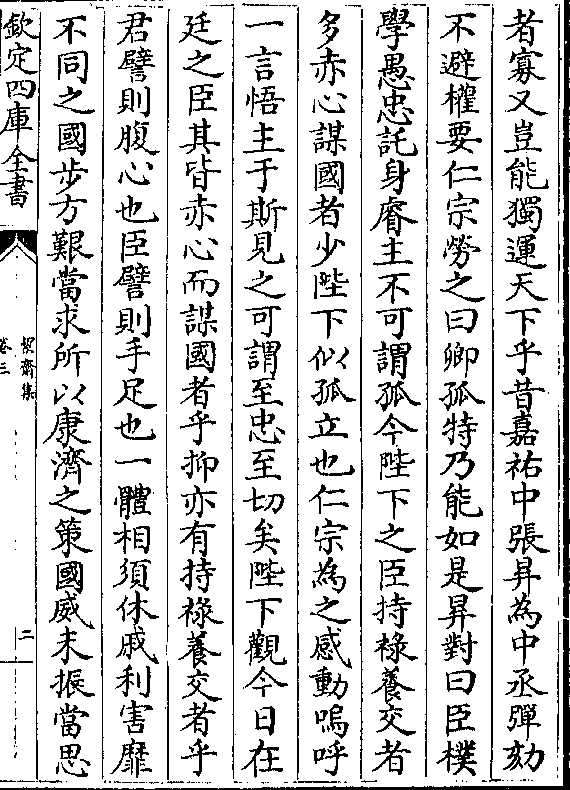 者寡又豈能獨運天下乎昔嘉祐中張昇為中丞彈劾
不避權要仁宗勞之曰卿孤特乃能如是昇對曰臣樸
學愚忠託身睿主不可謂孤今陛下之臣持祿養交者
多赤心謀國者少陛下似孤立也仁宗為之感動嗚呼
一言悟主于斯見之可謂至忠至切矣陛下觀今日在
廷之臣其皆赤心而謀國者乎抑亦有持祿養交者乎
君譬則腹心也臣譬則手足也一體相須休戚利害靡
不同之國步方艱當求所以康濟之策國威未振當思
欽定四庫全書
齋集
卷三
二